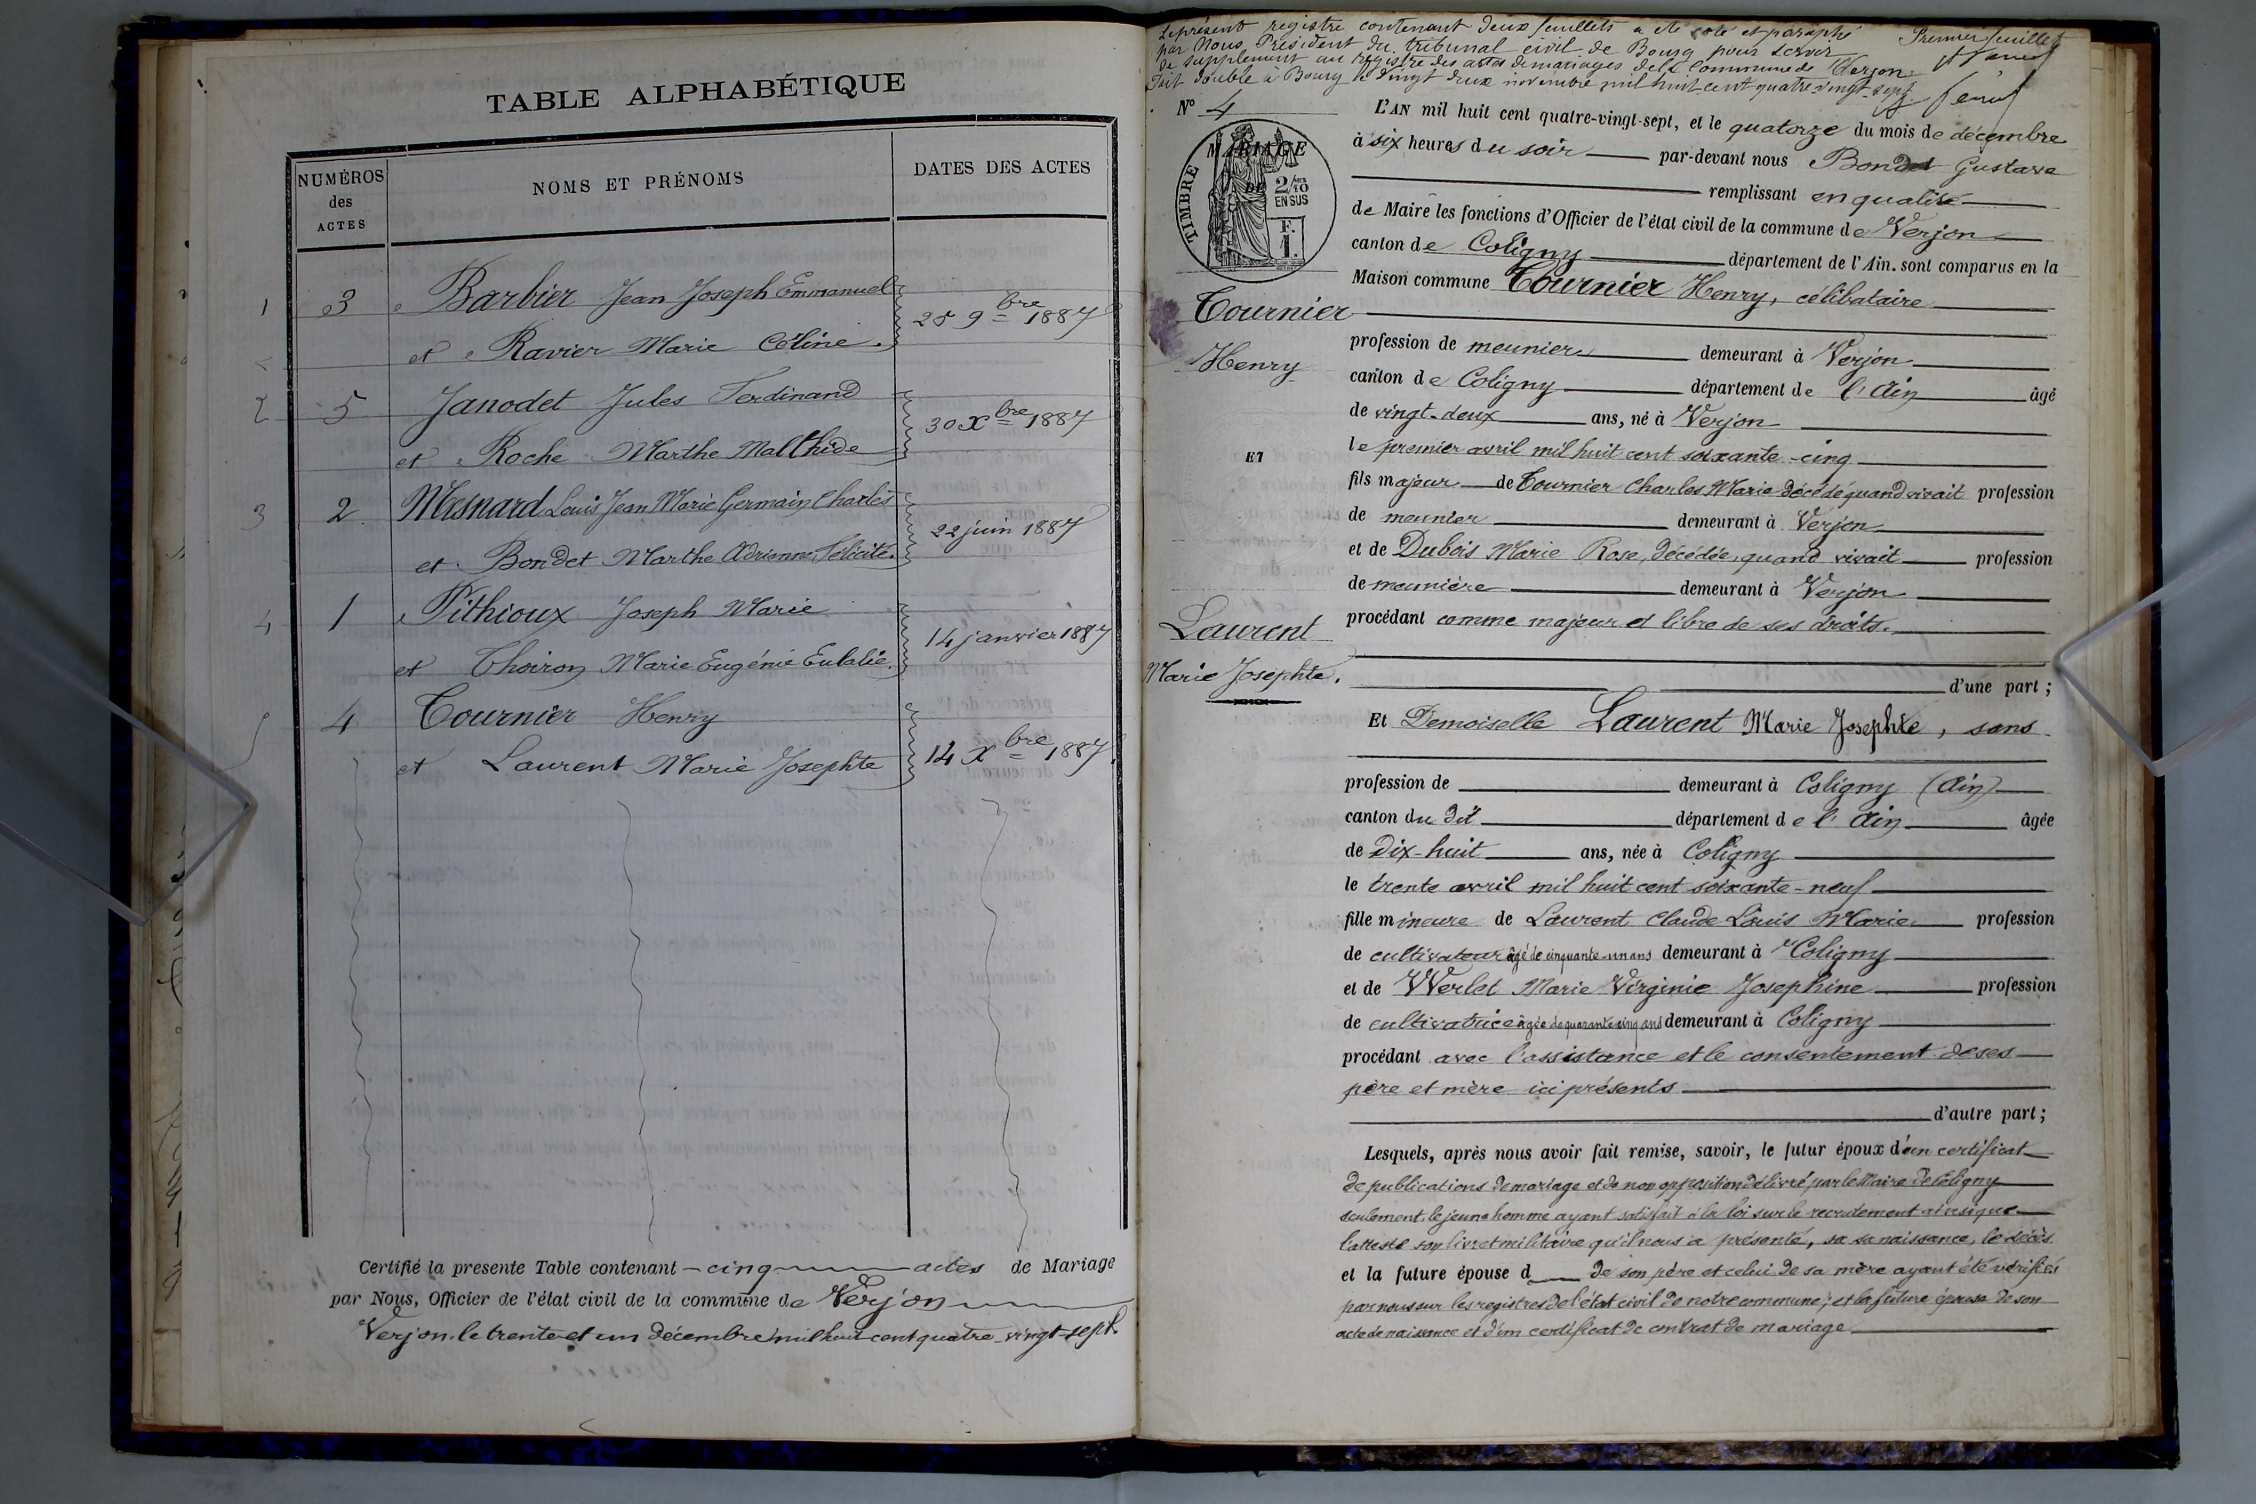 TABLE ALPHABÉTIQUE
NUMÉROS des ACTES
NOMS ET PRÉNOMS
DATES DES ACTES
1 3 Barbier Jean Joseph Emmanuel
et Ravier Marie Céline 28 9bre 1887
2 5 Janodet Jules Ferdinand
et Roche Marthe Malthide 30 Xbre 1887
3 2 Mesnard Louis Jean Marie Germain Charles
et Bondet Marthe Adrienne Félicité 22 juin 1887
4 1 Pithioux Joseph Marie
et Thoiron Marie Eugénie Eulalie 14 janvier 1887
5 4 Tournier Henry
et Laurent Marie Josephte 14 Xbre 1887
Certifié la presente Table contenant cinq actes de Mariage
par Nous, Officier de l'état civil de la commune de Verjon
Verjon le trente et un décembre mil huit cent quatre-vingt-sept
Le présent registre contenant deux feuillets a été coté et paraphé
par Nous, Président du tribunal civil de Bourg pour servir
de supplément au registre des actes de mariages de la Commune de Verjon
Fait double à Bourg le vingt deux novembre mil huit cent quatre-vingt-sept
Premier feuillet
N° 4
TIMBRE
MARIAGE
DE 2/10
EN SUS
F.
1.
L'AN mil huit cent quatre-vingt-sept, et le quatorze du mois de décembre
à six heures du soir par-devant nous Bondet Gustave
remplissant en qualité
de Maire les fonctions d'Officier de l'état civil de la commune de Verjon
canton de Coligny département de l'Ain. sont comparus en la
Maison commune Tournier Henry, célibataire
Tournier
Henry
profession de meunier demeurant à Verjon
canton de Coligny département de l'Ain âgé
de vingt-deux ans, né à Verjon
le premier avril mil huit cent soixante-cinq
ET
fils majeur de Tournier Charles Marie décédé quand vivait profession
de meunier demeurant à Verjon
et de Dubois Marie Rose, décédée, quand vivait profession
de meunière demeurant à Verjon
procédant comme majeur et libre de ses droits.
Laurent
Marie Josephte.
d'une part ;
Et Demoiselle Laurent Marie Josephte, sans
profession de demeurant à Coligny (Ain)
canton du dit département de l'Ain âgée
de Dix-huit ans, née à Coligny
le trente avril mil huit cent soixante-neuf
fille mineure de Laurent Claude Louis Marie profession
de cultivateur âgé de cinquante-un ans demeurant à Coligny
et de Werlet Marie Virginie Josephine profession
de cultivatrice âgée de quarante cinq ans demeurant à Coligny
procédant avec l'assistance et le consentement de ses
père et mère ici présents
d'autre part ;
Lesquels, après nous avoir fait remise, savoir, le futur époux d'un certificat
de publications de mariage et de non opposition délivré par le Maire de Coligny
seulement, le jeune homme ayant satisfait à la loi sur le recrutement ainsi que
l'atteste son livret militaire qu'il nous a présenté, sa naissance, le décès
et la future épouse d de son père et celui de sa mère ayant été vérifiés
par nous sur les registres de l'état civil de notre commune ; et la future épouse de son
acte de naissance et d'un certificat de contrat de mariage